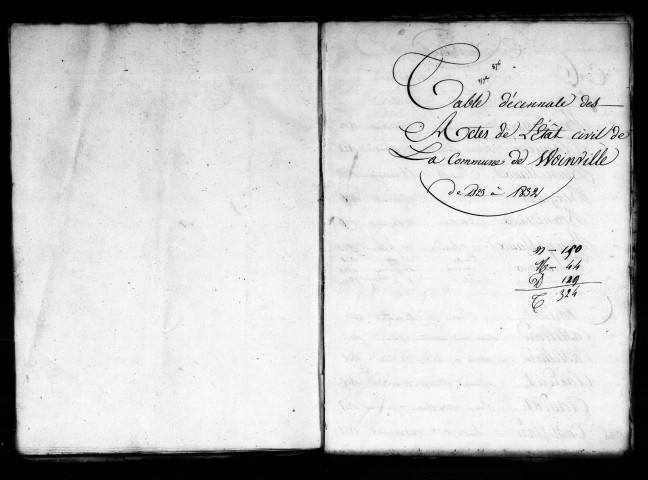 Table décennale des
Actes de L'Etat civil de
La Commune de Woinville
de 1823 à 1832
N — 150
M — 44
D
T 324